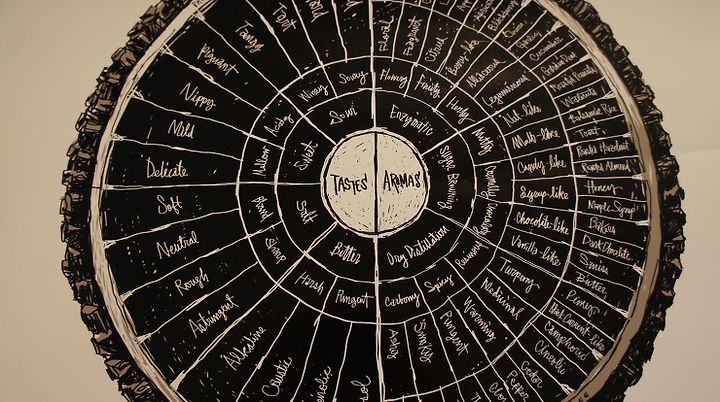 TASTES
AROMAS
Sour
Sweet
Salt
Bitter
Enzymatic
Sugar Browning
Dry Distillation
Soury
Winey
Acidy
Mellow
Bland
Sharp
Harsh
Pungent
Flowery
Fruity
Herby
Nutty
Caramelly
Chocolatey
Resinous
Spicy
Carbony
Hard
Tart
Tangy
Piquant
Nippy
Mild
Delicate
Soft
Neutral
Rough
Astringent
Alkaline
Caustic
Phenolic
Floral
Fragrant
Citrus
Berry-like
Alliaceous
Leguminous
Nut-like
Malt-like
Candy-like
Syrup-like
Chocolate-like
Vanilla-like
Turpeny
Medicinal
Warming
Pungent
Smoky
Ashy
Onion
Garlic
Cucumber
Garden Peas
Roasted Peanuts
Walnuts
Balsamic Rice
Toast
Roasted Hazelnut
Roasted Almond
Honey
Maple Syrup
Bakers
Dark Chocolate
Swiss
Butter
Piney
Black Currant-like
Camphoric
Cineolic
Cedar
Pepper